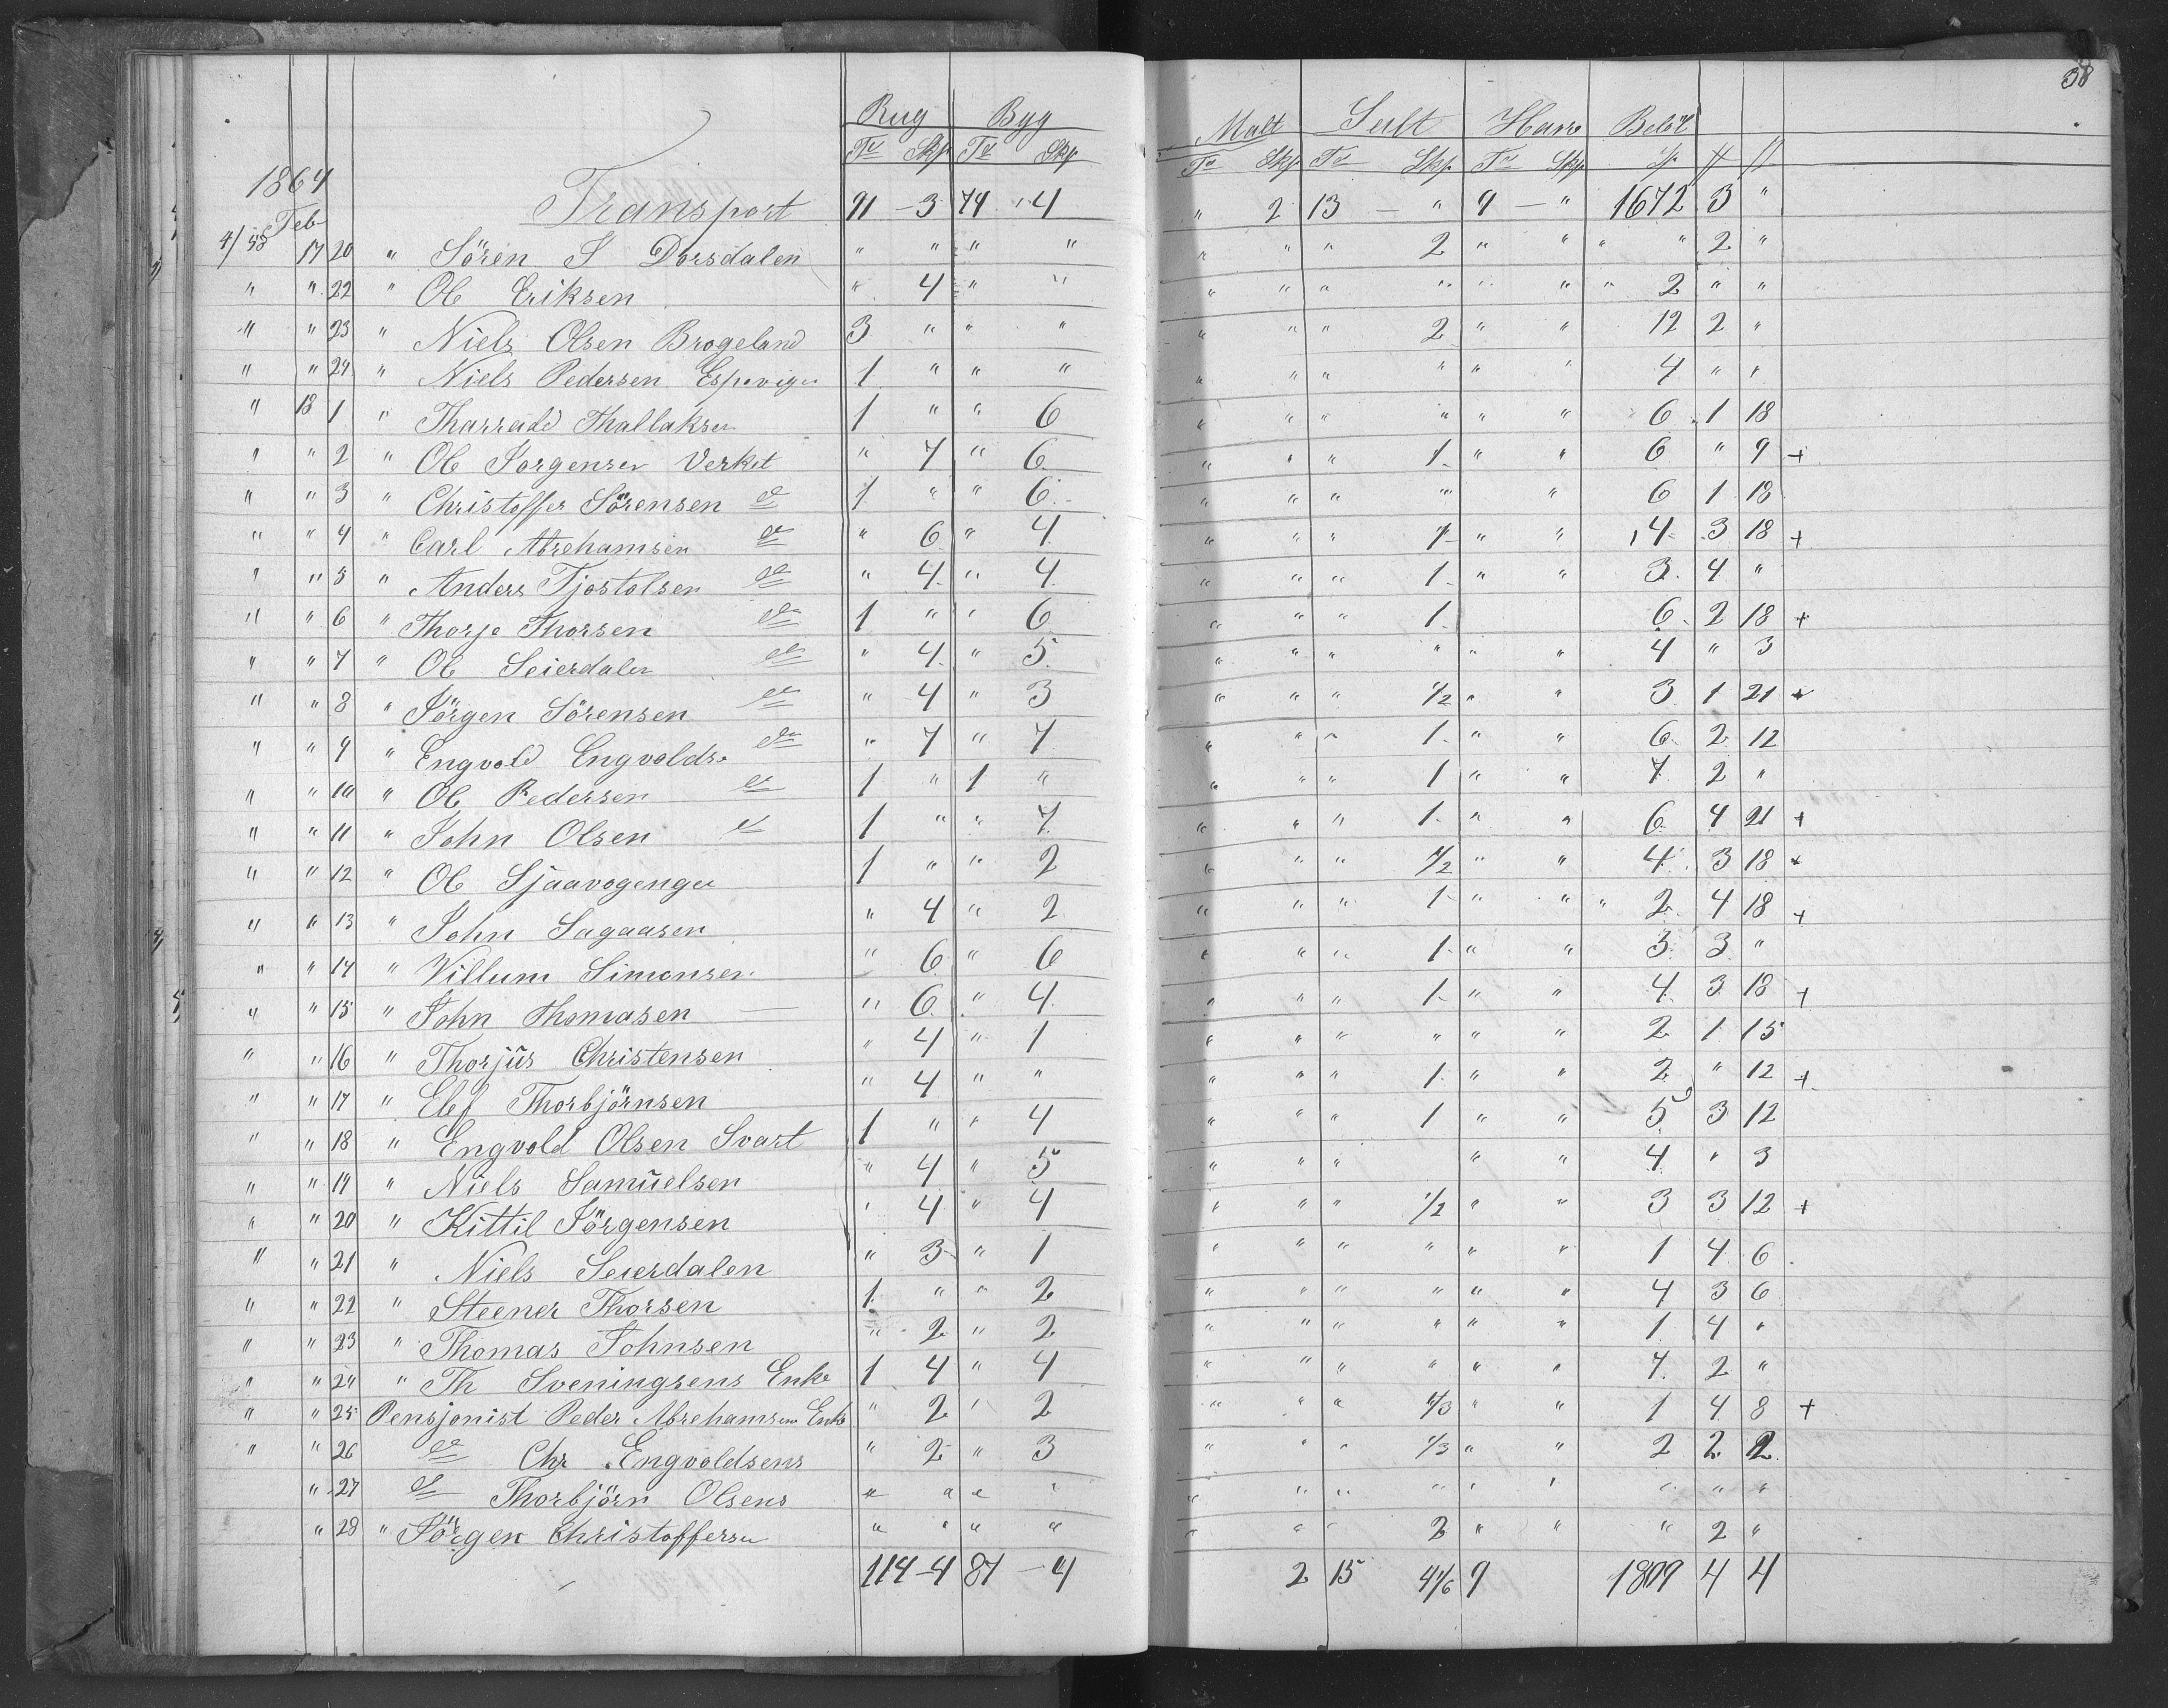 38
Rug Byg Malt Salt Havre Beløb
Tr Skp Tr Skp Tr Skp Tr Skp Tr Skp Sp
1864 Transport 91 - 3 74 " 4 " 2 13 - " 9 - " 1672 3 "
Feb
4/58 17 20 " Sören S Dorsdalen " " " " " " " 2 " " " " 2 "
" " 22 " Ol Eriksen " 4 " " " " " " " " " 2 " "
" " 23 " Niels Olsen Brogeland 3 " " " " " " 2 " " 12 2 "
" " 24 " Niels Pedersen 1 " " " " " " " " " 4 " "
" 18 1 " Thallaksen 1 " " 6 " " " " " " 6 1 18
" " 2 " Ol Jorgensen Verket " 7 " 6 " " " 1 " " 6 " 9 +
" " 3 " Christoffer Sörensen do 1 " " 6 " " " " " 6 1 18
" " 4 " Carl Abrehamsen do " 6 " 4 " " " 1 " " 4 3 18 +
" " 5 " Anders Tjostolsen do " 4 " 4 " " " 1 " " 3 4 "
" " 6 " Thorje Thorsen do 1 " " 6 " " " 1 6 2 18 +
" " 7 " Ol Seierdalen do " 4 " 5 " " " " " " 4 " 3
" " 8 " Jörgen Sörensen do " 4 " 3 " " " 1/2 " " 3 1 21 +
" " 9 " Engvold Engvoldsen do " 7 " 7 " " " 1 " " 6 2 12
" " 10 " Ol Pedersen do 1 " 1 " " " " 1 " " 7 2 "
" " 11 " John Olsen do 1 " " 7 " " " 1 " " 6 4 21 +
" " 12 " Ol 1 " " 2 " " " 1/2 " " 4 3 18 +
" " 13 " John Sagaasen " 4 " 2 " " " 1 " " " 2 4 18 +
" " 14 " Villum Simonsen " 6 " 6 " " " 1 " " 3 3 "
" " 15 " John Thomasen " 6 " 4 " " " 1 " " 4 3 18 +
" " 16 " Thorjus Christensen " 4 " 1 " " " " " " 2 1 15
" " 17 " Elef Thorbjörnsen " 4 " " " " " 1 " " 2 " 12 +
" " 18 " Engvold Olsen Svart 1 " " 4 " " " 1 " " 5 3 12
" " 19 " Niels Samuelsen " 4 " 5 " " " " " 4 " 3
" " 20 " Kittil Jörgensen " 4 " 4 " " " 1/2 " " 3 3 12 +
" " 21 " Niels Seierdalen " 3 " 1 " " " " " " 1 4 6
" " 22 " Steener Thorsen 1 " " 2 " " " " " " 4 3 6
" " 23 " Thomas Johnsen " 2 " 2 " " " " " " 1 4 "
" " 24 " Th Sveningsens Enke 1 4 " 4 " " " " " " 7 2 "
" " 25 Pensjonist Peder Abrehamsens Enke " 2 " 2 " " " 1/3 " " 1 4 8 +
" " 26 do Chr Engvoldsens " 2 " 3 " " " 1/3 " " 2 2 2
" 27 do Thorbjörn Olsens " " " " " " " " " " " " "
" 28 " Jörgen Christoffersen " " " " " " " 2 " " " 2 "
114 - 4 87 - 4 2 15 4 1/6 9 1809 4 4